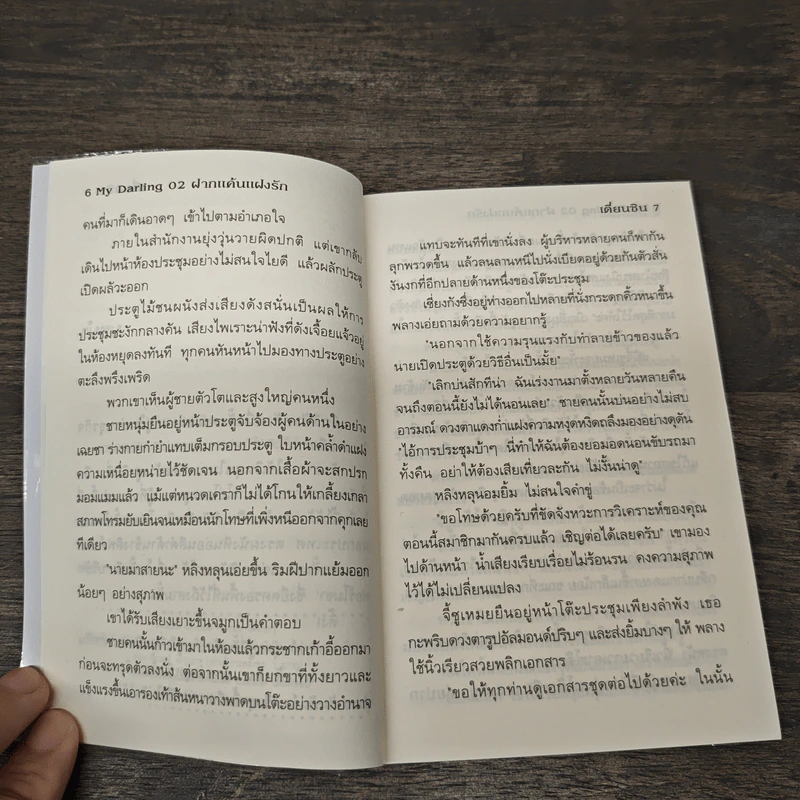 6 My Darling 02 ฝากแค้นแฝงรัก
คนที่มาก็เดินอาดๆ เข้าไปตามอำเภอใจ
ภายในสำนักงานยุ่งวุ่นวายผิดปกติ แต่เขากลับ
เดินไปหน้าห้องประชุมอย่างไม่สนใจไยดี แล้วผลักประตู
เปิดผลัวะออก
ประตูไม้ชนผนังส่งเสียงดังสนั่นเป็นผลให้การ
ประชุมชะงักกลางคัน เสียงไพเราะน่าฟังที่ดังเจื้อยแจ้วอยู่
ในห้องหยุดลงทันที ทุกคนหันหน้าไปมองทางประตูอย่าง
ตะลึงพรึงเพริด
พวกเขาเห็นผู้ชายตัวโตและสูงใหญ่คนหนึ่ง
ชายหนุ่มยืนอยู่หน้าประตูจับจ้องผู้คนด้านในอย่าง
เฉยชา ร่างกายกำยำแทบเต็มกรอบประตู ใบหน้าคล้ำดำแฝง
ความเหนื่อยหน่ายไว้ชัดเจน นอกจากเสื้อผ้าจะสกปรก
มอมแมมแล้ว แม้แต่หนวดเคราก็ไม่ได้โกนให้เกลี้ยงเกลา
สภาพโทรมยับเยินจนเหมือนนักโทษที่เพิ่งหนีออกจากคุกเลย
ทีเดียว
"นายมาสายนะ" หลิงหลุนเอ่ยขึ้น ริมฝีปากแย้มออก
น้อยๆ อย่างสุภาพ
เขาได้รับเสียงเยาะขึ้นจมูกเป็นคำตอบ
ชายคนนั้นก้าวเข้ามาในห้องแล้วกระชากเก้าอี้ออกมา
ก่อนจะทรุดตัวลงนั่ง ต่อจากนั้นเขาก็ยกขาที่ทั้งยาวและ
แข็งแรงขึ้นเอารองเท้าส้นหนาวางพาดบนโต๊ะอย่างวางอำนาจ
เดี่ยนซิน 7
แทบจะทันทีที่เขานั่งลง ผู้บริหารหลายคนก็พากัน
ลุกพรวดขึ้น แล้วลนลานหนีไปนั่งเบียดอยู่ด้วยกันตัวสั่น
งันงกที่อีกปลายด้านหนึ่งของโต๊ะประชุม
เซี่ยงกังซึ่งอยู่ห่างออกไปหลายที่นั่งกระดกคิ้วหนาขึ้น
พลางเอ่ยถามด้วยความอยากรู้
"นอกจากใช้ความรุนแรงกับทำลายข้าวของแล้ว
นายเปิดประตูด้วยวิธีอื่นเป็นมั้ย"
"เลิกบ่นสักทีน่า ฉันเร่งงานมาตั้งหลายวันหลายคืน
จนถึงตอนนี้ยังไม่ได้นอนเลย" ชายคนนั้นบ่นอย่างไม่สบ
อารมณ์ ดวงตาแดงก่ำแฝงความหงุดหงิดถลึงมองอย่างดุดัน
"ไอ้การประชุมบ้าๆ นี่ทำให้ฉันต้องยอมอดนอนขับรถมา
ทั้งคืน อย่าให้ต้องเสียเที่ยวละกัน ไม่งั้นน่าดู"
หลิงหลุนอมยิ้ม ไม่สนใจคำขู่
"ขอโทษด้วยครับที่ขัดจังหวะการวิเคราะห์ของคุณ
ตอนนี้สมาชิกมากันครบแล้ว เชิญต่อได้เลยครับ" เขามอง
ไปด้านหน้า น้ำเสียงเรียบเรื่อยไม่ร้อนรน คงความสุภาพ
ไว้ได้ไม่เปลี่ยนแปลง
จี้ซูเหมยยืนอยู่หน้าโต๊ะประชุมเพียงลำพัง เธอ
กะพริบดวงตารูปอัลมอนด์ปริบๆ และส่งยิ้มบางๆ ให้ พลาง
ใช้นิ้วเรียวสวยพลิกเอกสาร
"ขอให้ทุกท่านดูเอกสารชุดต่อไปด้วยค่ะ ในนั้น